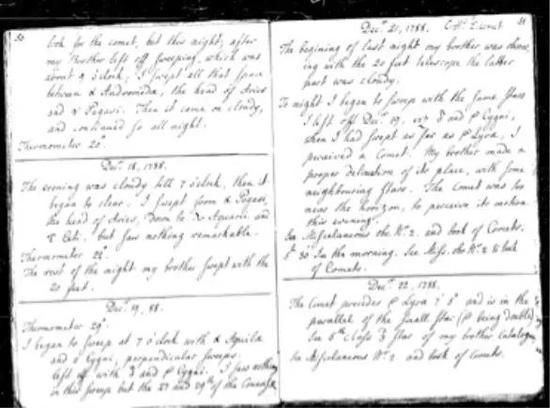 50
look for the comet, but this night, after
my Brother left off sweeping, which was
about 9 o'clock, I swept all that space
between α Andromedæ, the head of Aries
and α Pegasi. Then it came on cloudy,
and continued so all night.
Thermometer 20.
Decr. 18, 1788.
The evening was cloudy till 7 o'clock, then it
began to clear. I swept from α Pegasi,
the head of Aries, Down to Aquarii and
Ceti, but saw nothing remarkable.
Thermometer 22°.
The rest of the night my brother swept with the
20 feet.
Decr. 19, 88.
Thermometer 29°.
I began to sweep at 7 o'clock with α Aquilæ
and Cygni, perpendicular sweeps.
left off with and β Cygni. I saw nothing
in this sweep but the 27 and 29th of the Connoiss.
51
Decr. 21, 1788. Comet
The begining of last night my brother was observ-
ing with the 20 feet telescope the latter
part was cloudy.
To night I began to sweep with the same stars
I left off Decr. 19, viz and β Cygni,
when I had swept as far as β Lyræ, I
perceived a Comet. My brother made a
proper delineation of its place, with some
neighbouring stars. The Comet was too
near the horizon, to perceive its motion
this evening.
See Miscelaneous No. 2. and book of Comets.
5h 30 In the morning. See Miss. No. 2 & book
of Comets.
Decr. 22, 1788.
The Comet precedes β Lyra 7' 5" and is in the
parallel of the small star (β being double)
See 5th class 3 star of my brother Catalogue
See Miscelaneous No. 2 and book of Comets.